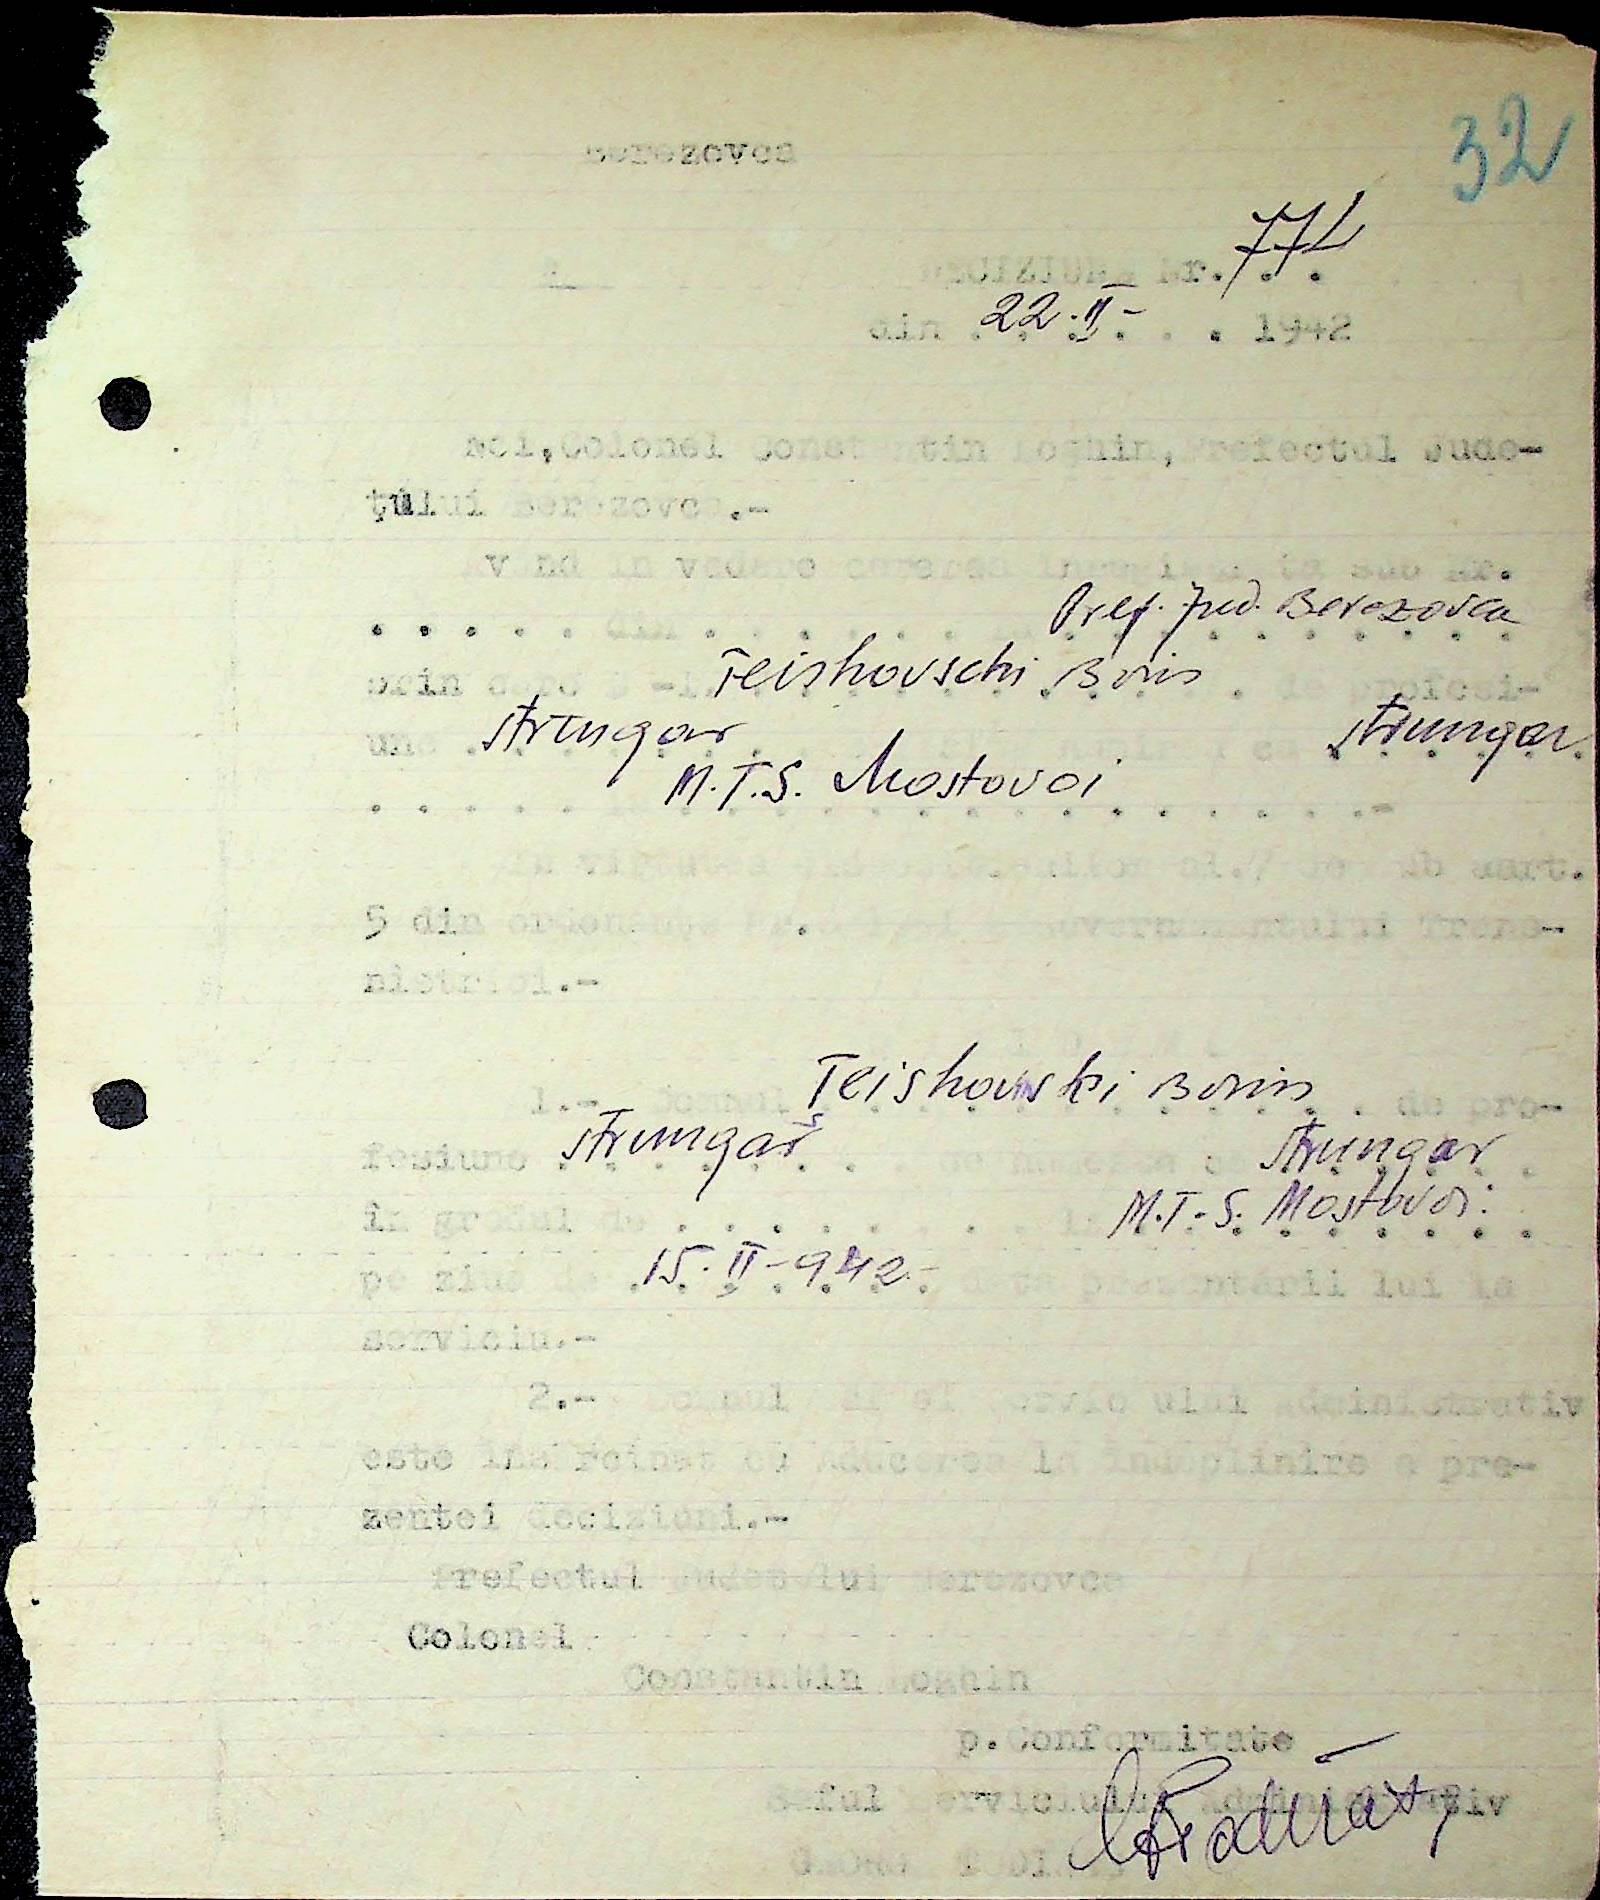 32
Berezovca
DECISIUNEA Nr. 771
din 22.II- 1942
Noi, Colonel Constantin Loghin, Prefectul Jude-
ţului Berezovca.-
Avand in vedere cererea Nr.
. . . . . din . . . . . . Pref. Jud. Berezovca
prin care Teishovschi Boris de profesi-
une strungar ca strungar
M.T.S. Mostovoi
In virtutea de sub art.
5 din ordonanţa Nr. Guvernamantului Trans-
nistriei.-
1.- Domnul Teishovski Boris de pro-
fesiune strungar se numeste ca strungar
în gradul de . . . . . . . . la M.T.S. Mostovoi
pe ziua de 15.II-942.- data prezentarii lui la
serviciu.-
2.- Domnul Sef al Serviciului Administrativ
este insarcinat cu aducerea la indeplinire a pre-
zentei deciziuni.-
Prefectul Judetului Berezovca
Colonel
Constantin Loghin
p. Conformitate
Seful Serviciului Administrativ